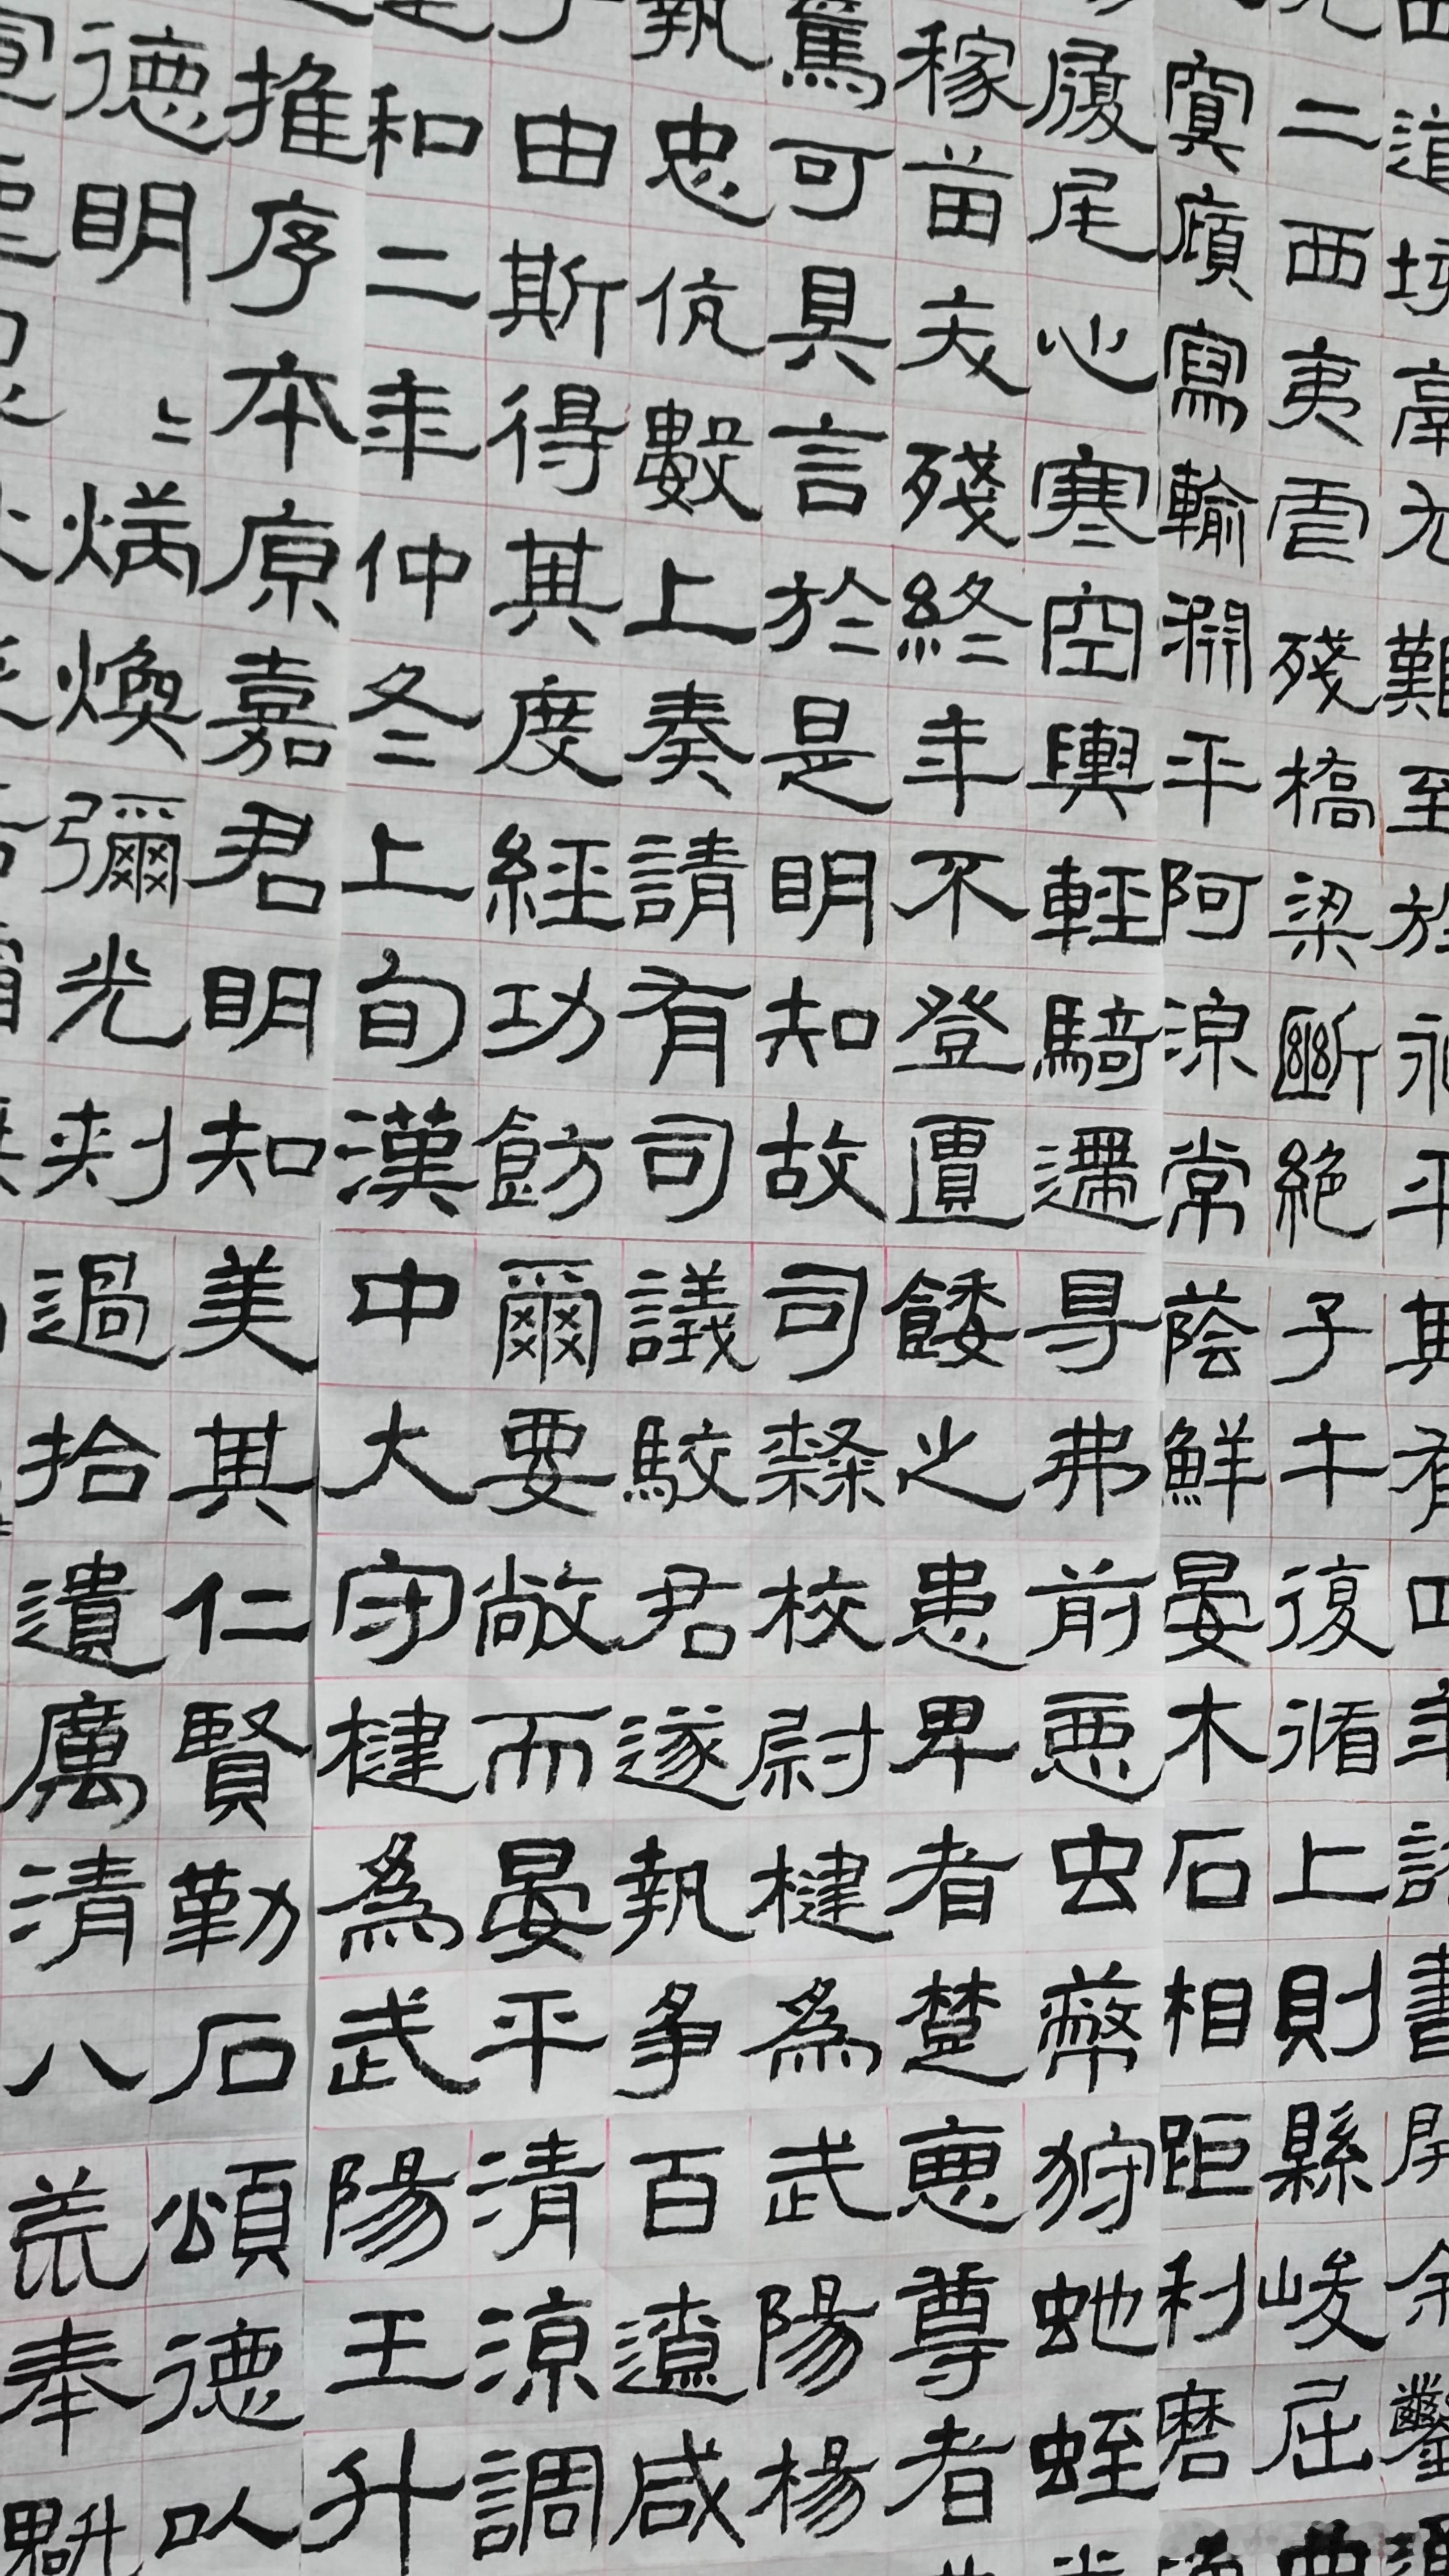 道難至於永平其有四年詔書開余鑿
二西夷虐殘橋梁斷絕子午復循上則縣峻屈曲
冥廎寫輸淵平阿涼常蔭鮮晏木石相距利磨
履尾心寒空輿輕騎遰㝵弗前惡虫幣狩虵蛭
稼苗夭殘終年不登匱餧之患卑者楚惡尊者
篤可具言於是明知故司隸校尉楗為武陽楊
執忠伉數上奏請有司議駮君遂執爭百遼咸
由斯得其度經功飭爾要敞而晏平清涼調
和二年仲冬上旬漢中大守楗為武陽王升
推序本原嘉君明知美其仁賢勒石頌德以
德明煥彌光刺過拾遺厲清八荒奉魁